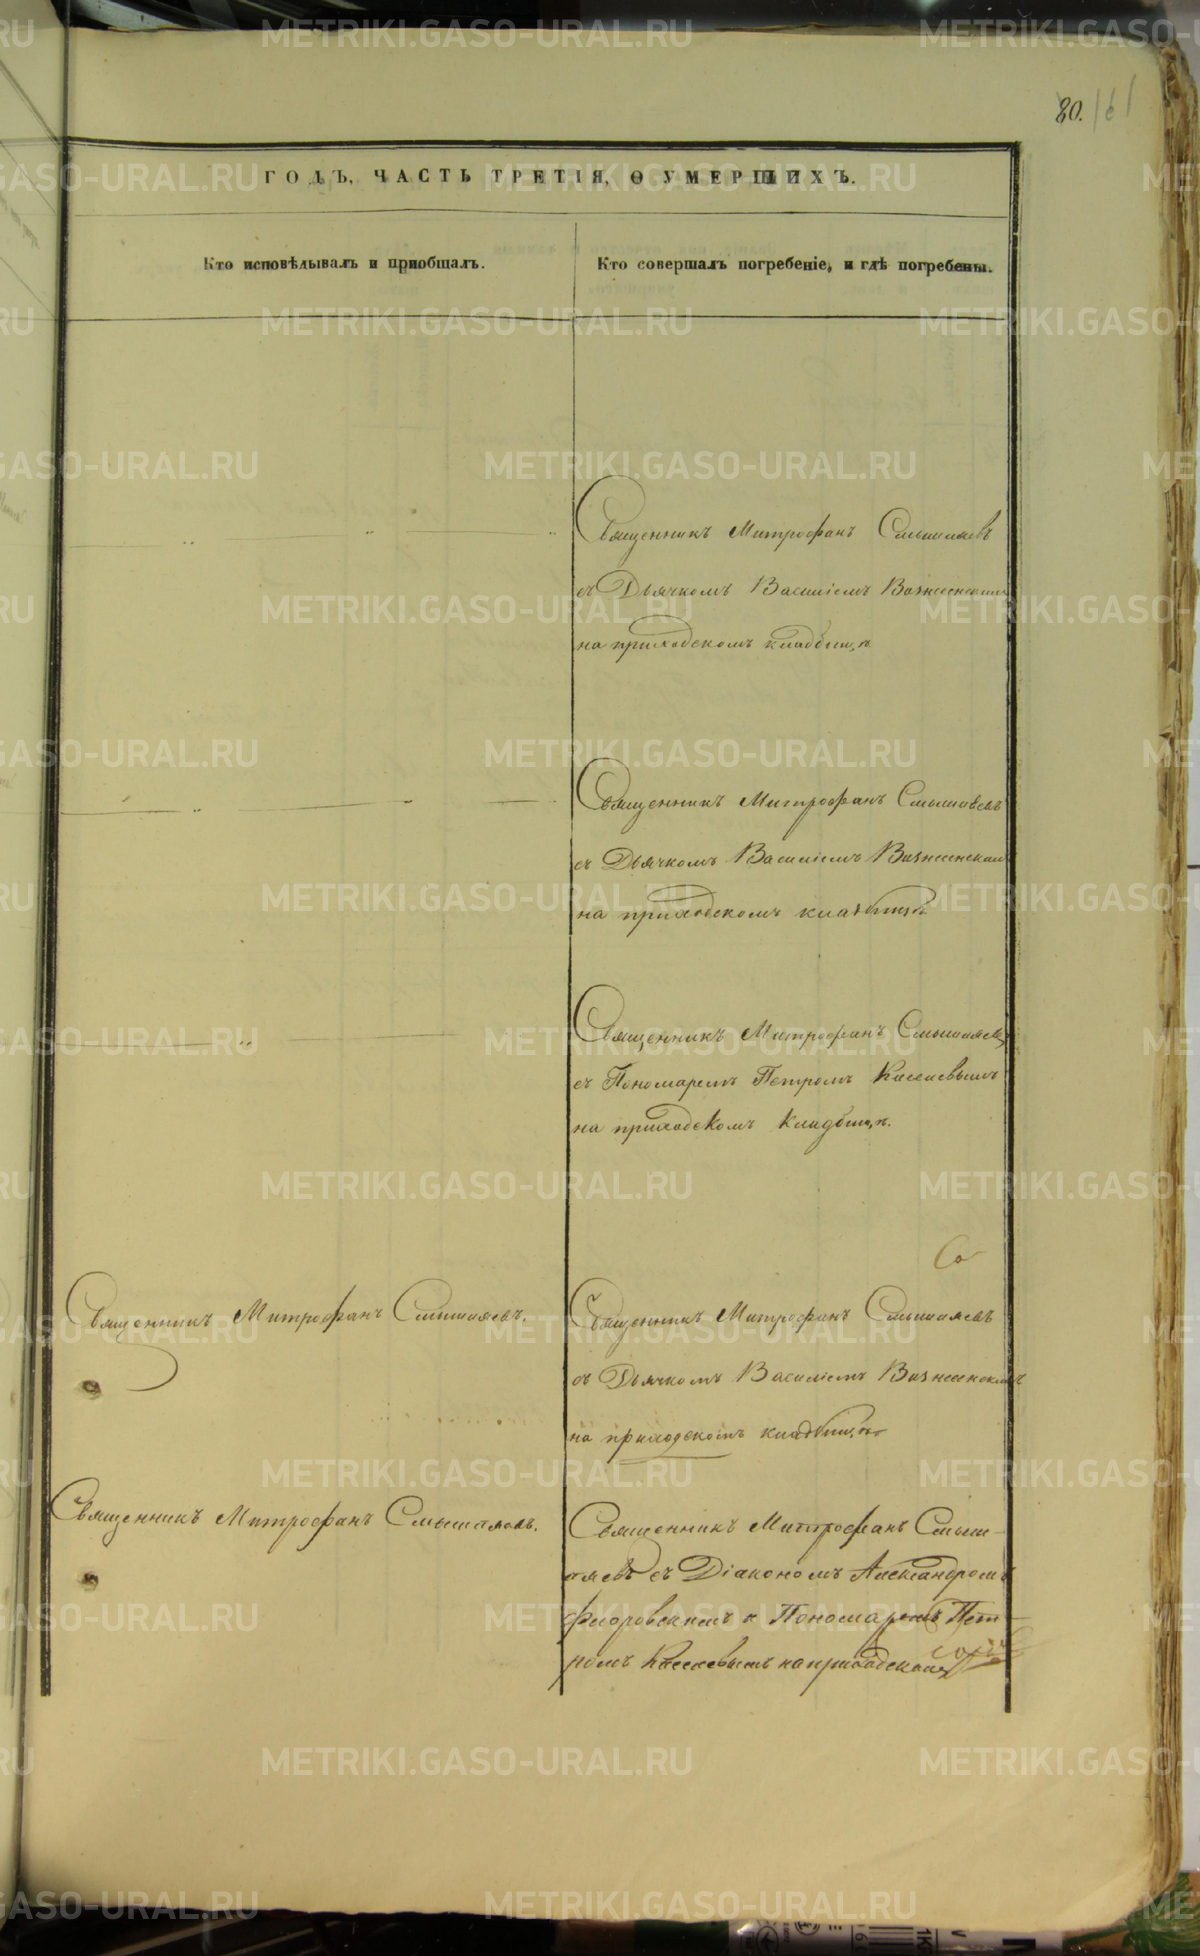 80.
ГОДЪ, ЧАСТЬ ТРЕТІЯ, О УМЕРШИХЪ.
Кто исповѣдывалъ и пріобщалъ.
Кто совершалъ погребеніе, и гдѣ погребены.
Священникъ Митрофанъ Смышляевъ
съ Дьячкомъ Василіемъ Вознесенскимъ
на приходскомъ кладбищѣ
Священникъ Митрофанъ Смышляевъ
съ Дьячкомъ Василіемъ Вознесенским
на приходскомъ кладбищѣ
Священникъ Митрофанъ Смышляевъ
съ Пономаремъ Петромъ Киселевымъ
на приходскомъ кладбищѣ.
Священникъ Митрофанъ Смышляевъ.
Священникъ Митрофанъ Смышляевъ
съ Дьячкомъ Василіемъ Вознесенскимъ
на приходскомъ кладбищѣ
Священникъ Митрофанъ Смышляевъ.
Священникъ Митрофанъ Смыш-
ляевъ съ Діакономъ Александромъ
Флоровскимъ и Пономаремъ Пет-
ромъ Киселевымъ на приходском
METRIKI.GASO-URAL.RU